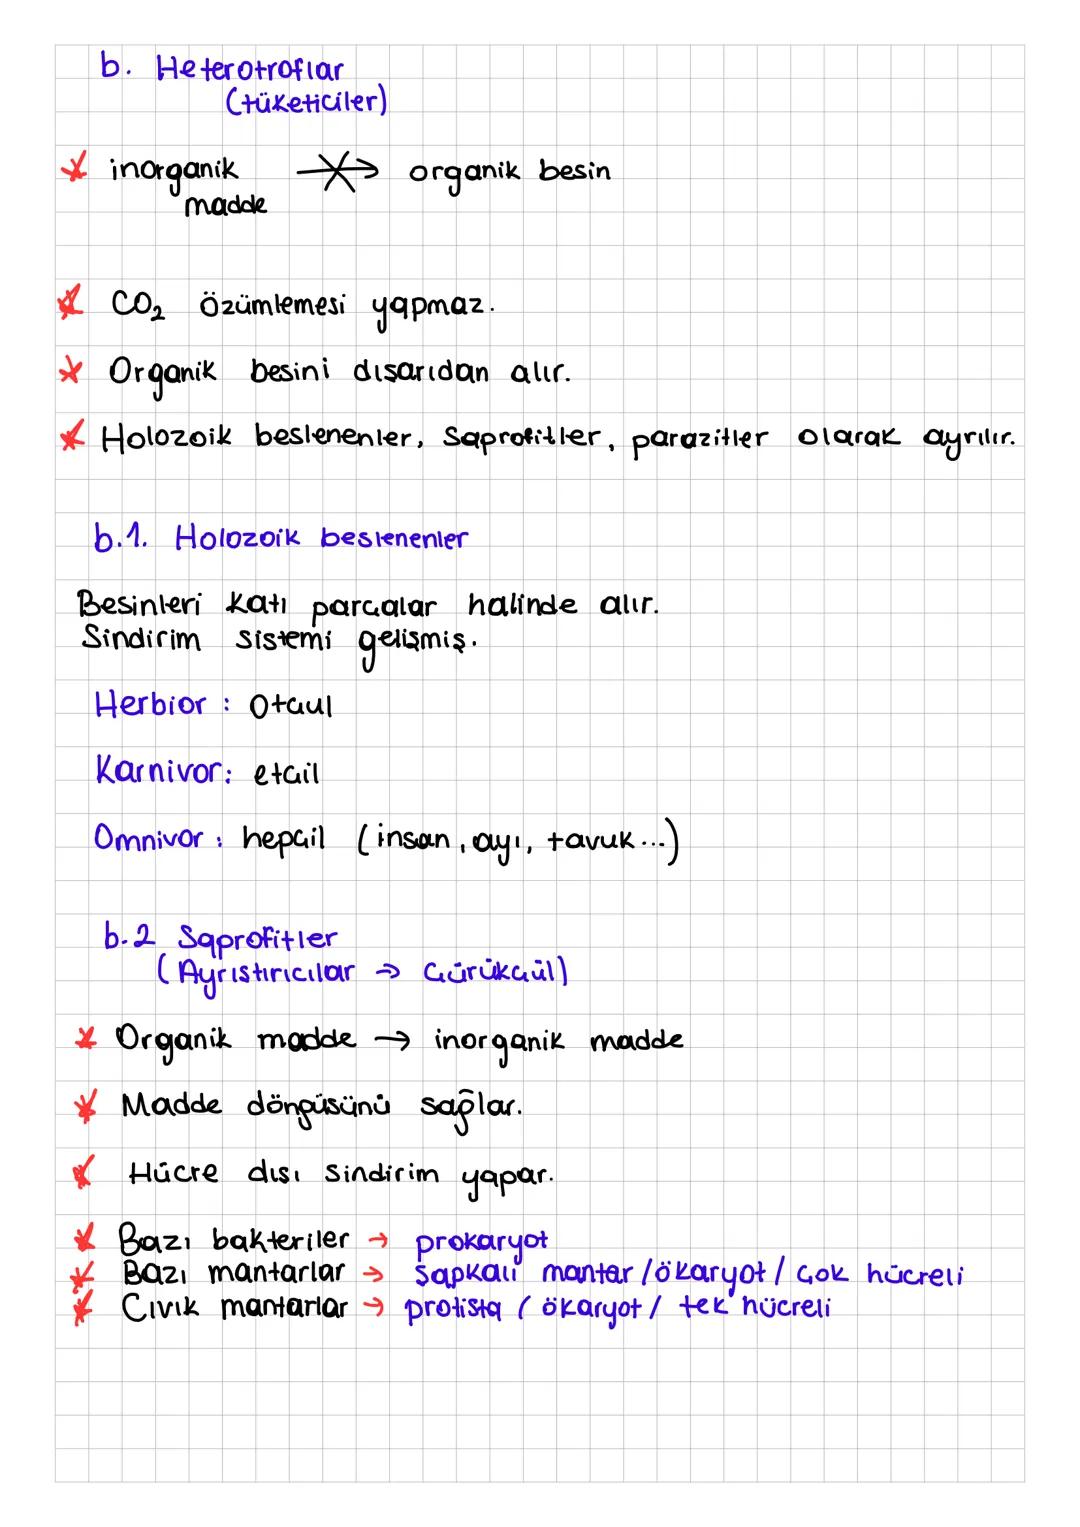 b. Heterotroflar
(tüketiciler)
* inorganik madde ↛ organik besin
* CO₂ özümlemesi yapmaz.
* Organik besini dışarıdan alır.
* Holozoik beslenenler, Saprofitler, parazitler olarak ayrılır.
b.1. Holozoik beslenenler
Besinleri katı parçalar halinde alır.
Sindirim sistemi gelişmiş.
Herbior : Otçul
Karnivor: etçil
Omnivor : hepçil (insan, ayı, tavuk...)
b.2 Saprofitler
(Ayrıştırıcılar → Çürükçül)
* Organik madde → inorganik madde
* Madde döngüsünü sağlar.
* Hücre dışı sindirim yapar.
* Bazı bakteriler → prokaryot
* Bazı mantarlar → şapkalı mantar / ökaryot / çok hücreli
* Cıvık mantarlar → protista / ökaryot / tek hücreli